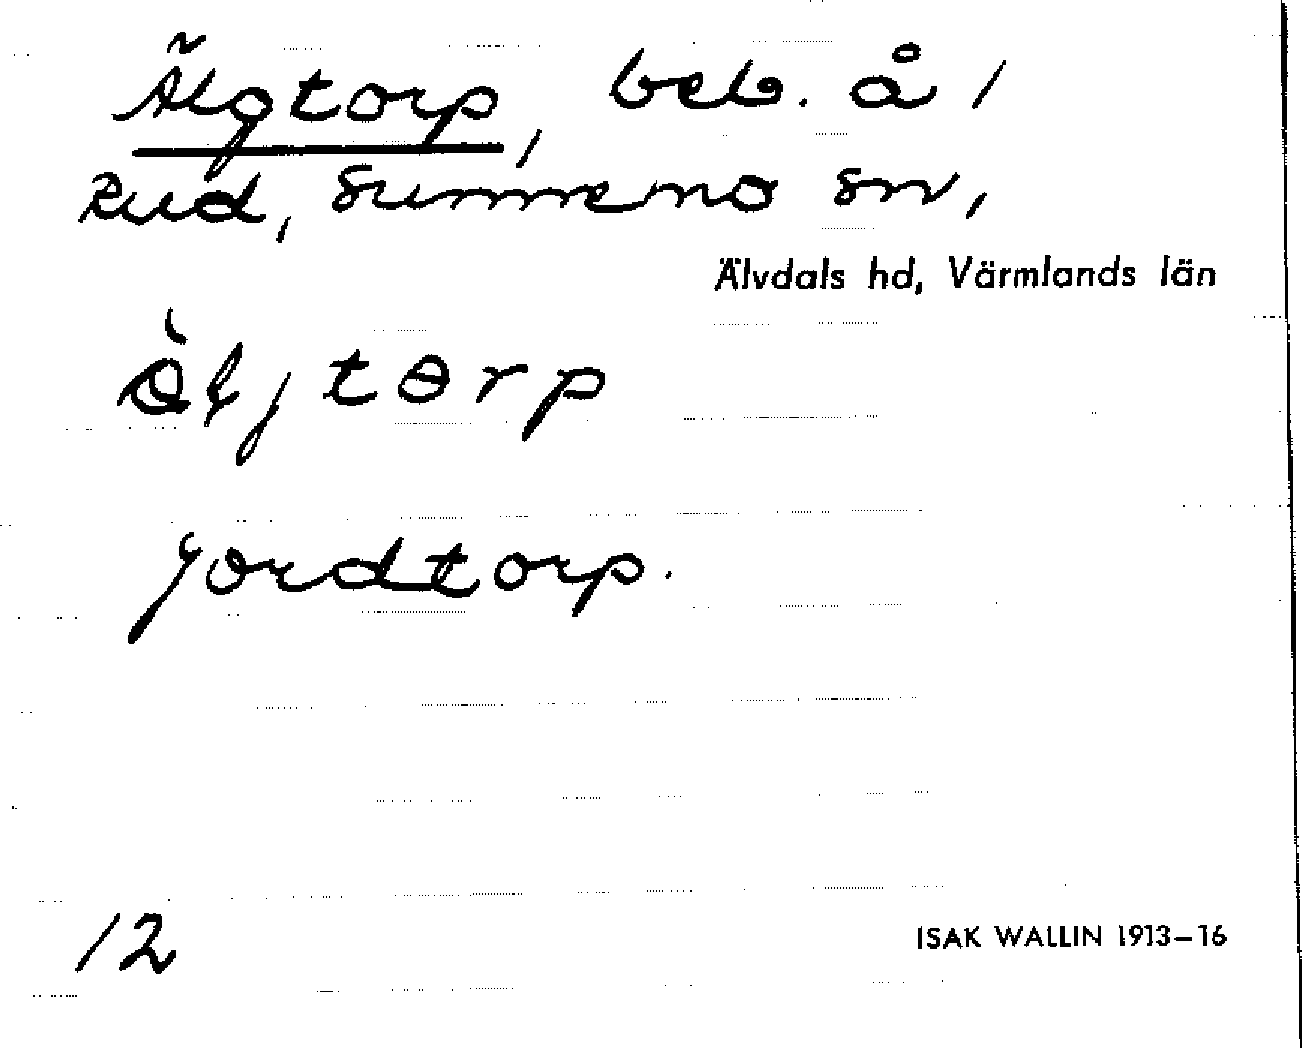 Älgtorp, beb. å /
Rud, Sunnemo sn,
Älvdals hd, Värmlands län
jordtorp.
12
ISAK WALLIN 1913–16